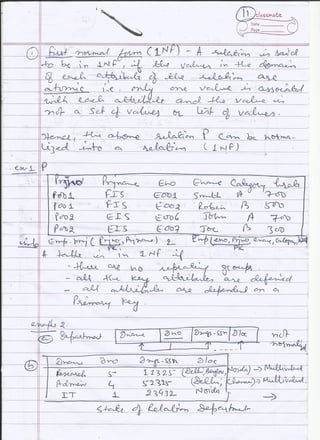 11
classmate
Date
Page
① first normal form (1NF) - A relation is said
to be in 1NF, if the values in the domain
of each attribute of the relation are
atomic i.e. only one value is associated
with each attribute and the value is
not a set of values or list of values.
Hence, the above relation P can be norma-
lized into a relation (1NF)
ex-1 P
Prjno Prjname Eno Ename Category hrate
P001 FIS E001 Smith A 700
P001 FIS E002 Robin B 500
P002 EIS E006 John A 700
P002 EIS E007 Joe B 300
Emp. proj (Prjno, Prjname) & Emp (eno, Prjno, ename, Category,
PK PK
A table is in 1NF if
- there are no repeating groups
- all the key attributes are defined
- all attributes are dependent on a
Primary key.
example 2.
ⓐ Department Dname Dno Dmgr-SSN Dloc
not
normalized
ⓑ Dname Dno Dmgr-SSN Dloc
Research 5 11325 (Delhi, Noida) → Multivalued
Admin 4 52325 (Delhi, Chennai) → Multivalued
IT 1 23432 Noida →
State of Relation Department